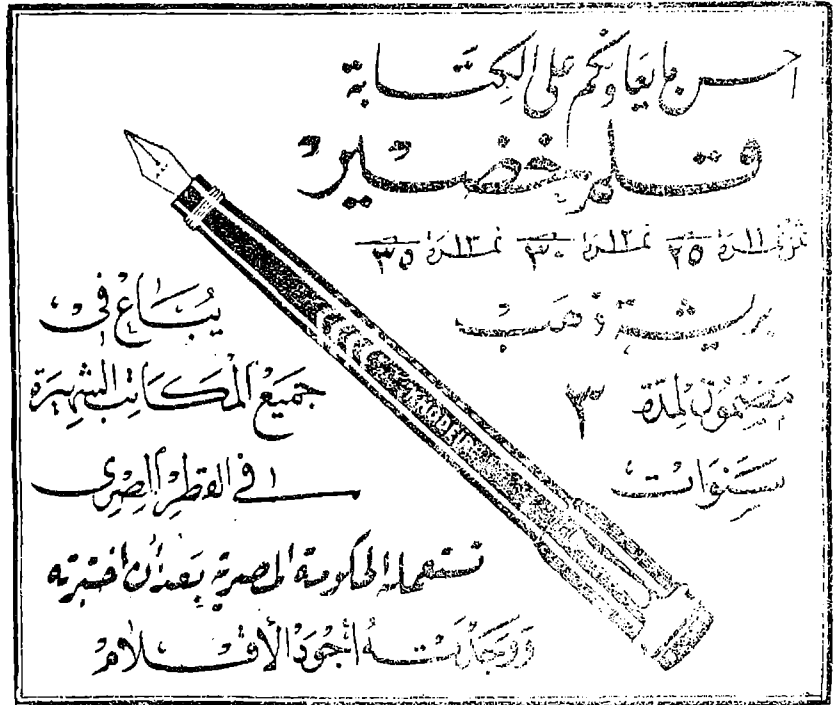 احسن ما يعاونكم على الكتابة
قلم خضير
نمرة ١١ ٢٥ نمرة ١٢ ٣٠ نمرة ١٣ ٣٥
بريشة ذهب
مضمون لمدة ٣
سنوات
يُبَاع في
جميع المكاتب الشهيرة
في القطر المصري
تستعمله الحكومة المصرية بعد أن اختبرته
ووجدته أجود الأقلام
KHODEIR